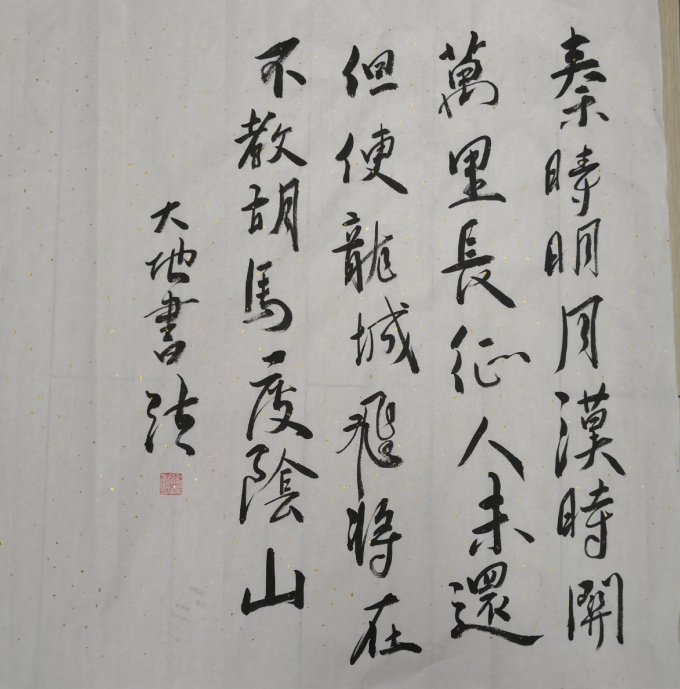 秦時明月漢時關
萬里長征人未還
但使龍城飛將在
不教胡馬度陰山
大地書法